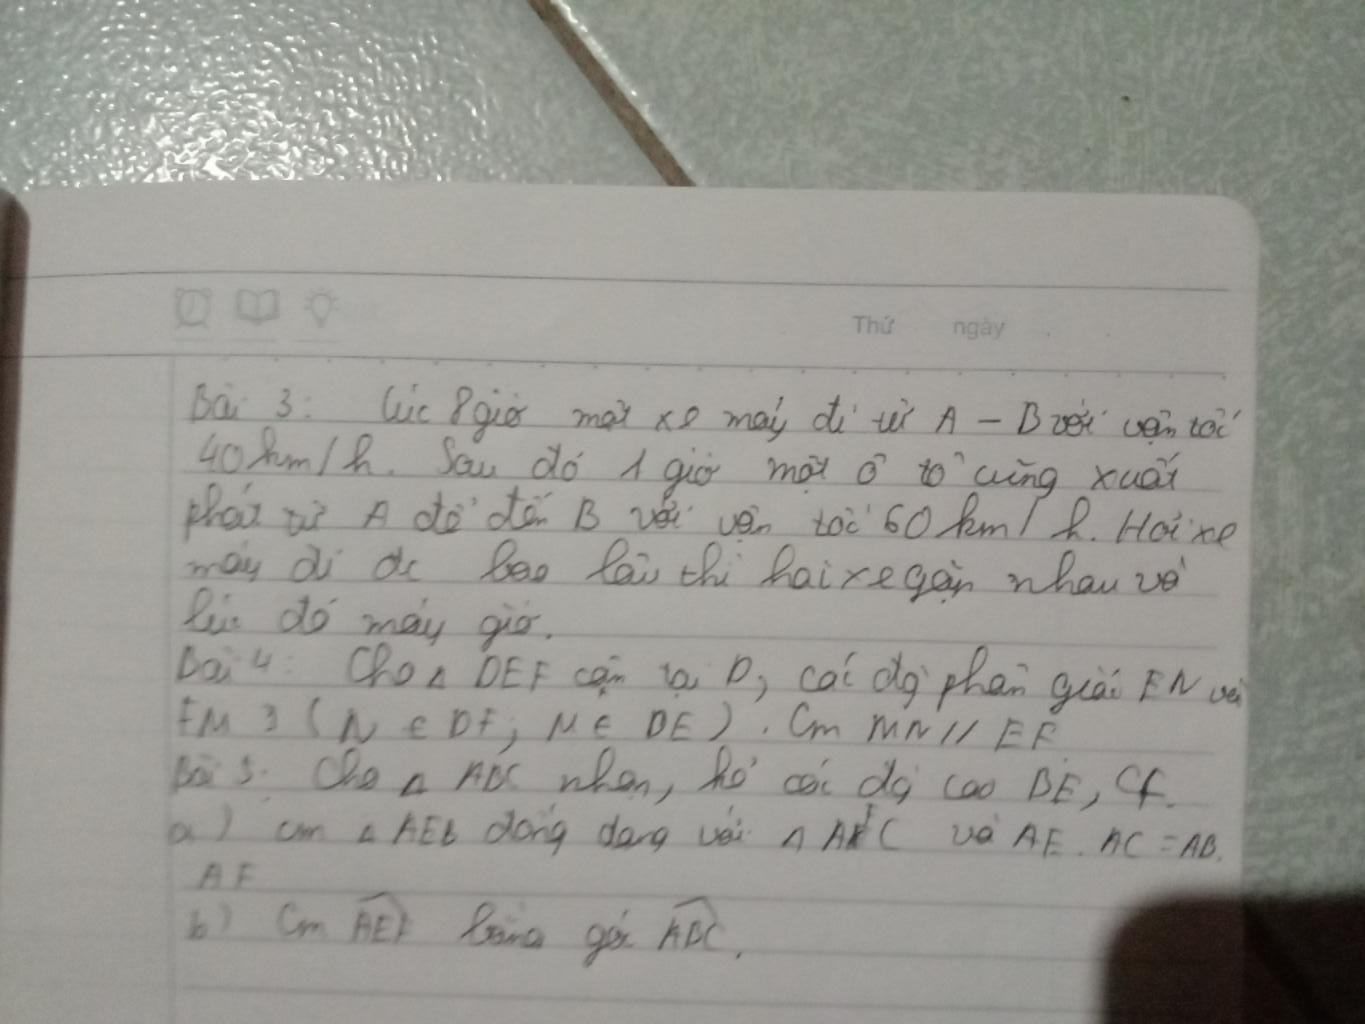 Thứ ngày
Bài 3: lúc 8 giờ một xe máy đi từ A - B với vận tốc
40 km/h. Sau đó 1 giờ một ô tô cũng xuất
phát từ A để đến B với vận tốc 60 km/h. Hỏi xe
máy đi đc bao lâu thì hai xe gặp nhau và
lúc đó mấy giờ.
Bài 4: Cho △ DEF cân tại D, các đg phân giác EN và
FM (N ∈ DF; M ∈ DE). Cm MN // EF
Bài 5: Cho △ ABC nhọn, kẻ các đg cao BE, CF.
a) cm △ AEB đồng dạng với △ AFC và AE. AC = AB.
AF
b) Cm AEF bằng góc ABC.